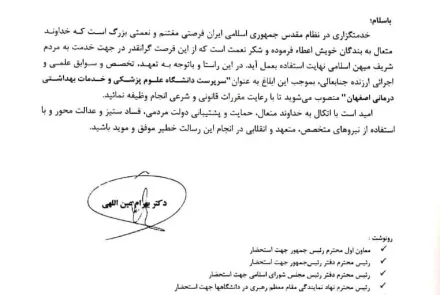 باسلام؛
خدمتگزاری در نظام مقدس جمهوری اسلامی ایران فرصتی مغتنم و نعمتی بزرگ است که خداوند
متعال به بندگان خویش اعطاء فرموده و شکر نعمت است که از این فرصت گرانقدر در جهت خدمت به مردم
شریف میهن اسلامی نهایت استفاده بعمل آید. در این راستا و باتوجه به تعهد، تخصص و سوابق علمی و
اجرائی ارزنده جنابعالی، بموجب این ابلاغ به عنوان "سرپرست دانشگاه علوم پزشکی و خدمات بهداشتی
درمانی اصفهان" منصوب می‌شوید تا با رعایت مقررات قانونی و شرعی انجام وظیفه نمائید.
امید است با اتکال به خداوند متعال، حمایت و پشتیبانی دولت مردمی، فساد ستیز و عدالت محور و با
استفاده از نیروهای متخصص، متعهد و انقلابی در انجام این رسالت خطیر موفق و موید باشید.
دکتر بهرام عین اللهی
رونوشت :
✓ معاون اول محترم رئیس جمهور جهت استحضار
✓ رئیس محترم دفتر رئیس‌جمهور جهت استحضار
✓ رئیس محترم دفتر رئیس مجلس شورای اسلامی جهت استحضار
✓ رئیس محترم نهاد نمایندگی مقام معظم رهبری در دانشگاهها جهت استحضار